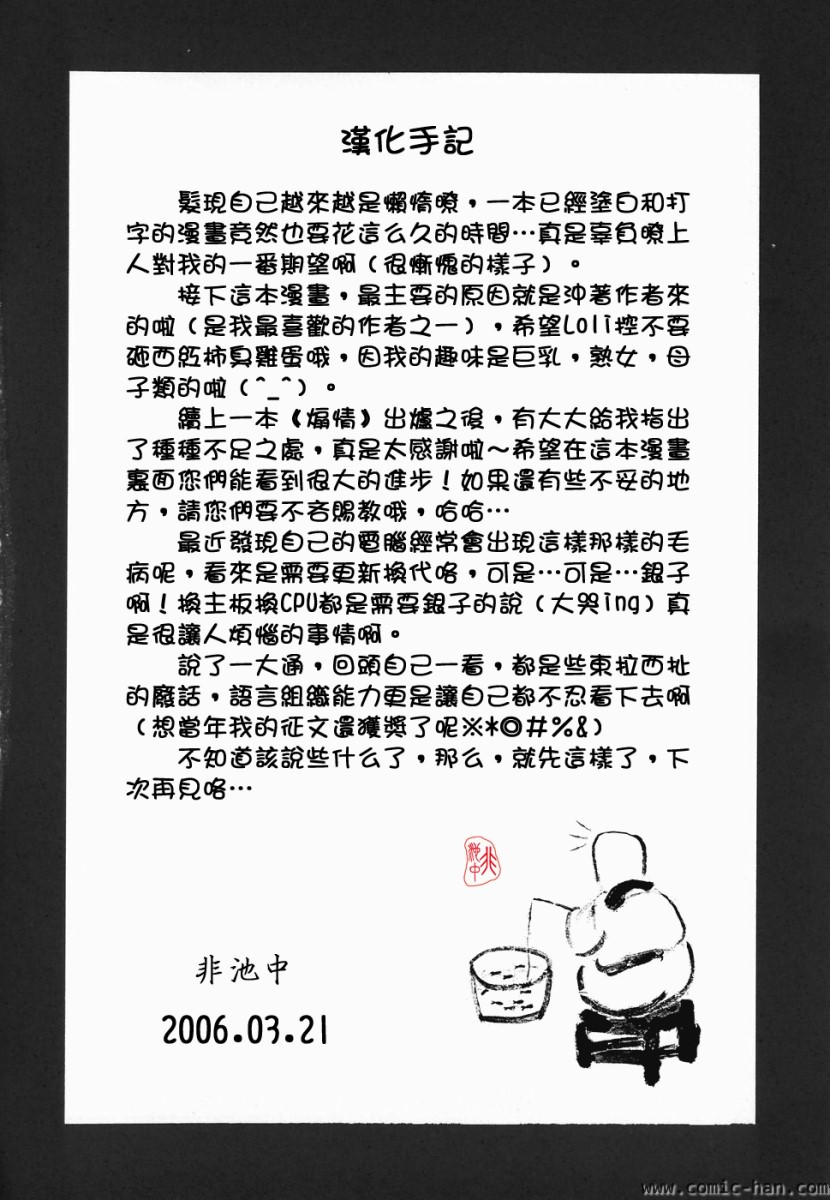 漢化手記
髮現自己越來越是懶惰暸，一本已經塗白和打
字的漫畫竟然也要花這么久的時間…真是辜負暸上
人對我的一番期望啊（很慚愧的樣子）。
接下這本漫畫，最主要的原因就是沖著作者來
的啦（是我最喜歡的作者之一），希望Loli控不要
砸西紅柿臭雞蛋哦，因我的趣味是巨乳，熟女，母
子類的啦（^_^）。
續上一本《煽情》出爐之後，有大大給我指出
了種種不足之處，真是太感謝啦～希望在這本漫畫
裏面您們能看到很大的進步！如果還有些不妥的地
方，請您們要不吝賜教哦，哈哈…
最近發現自己的電腦經常會出現這樣那樣的毛
病呢，看來是需要更新換代咯，可是…可是…銀子
啊！換主板換CPU都是需要銀子的說（大哭ing）真
是很讓人煩惱的事情啊。
說了一大通，回頭自己一看，都是些東拉西扯
的廢話，語言組織能力更是讓自己都不忍看下去啊
（想當年我的征文還獲獎了呢※*◎#%&）
不知道該說些什么了，那么，就先這樣了，下
次再見咯…
非池中
非池中
2006.03.21
www.comic-han.com